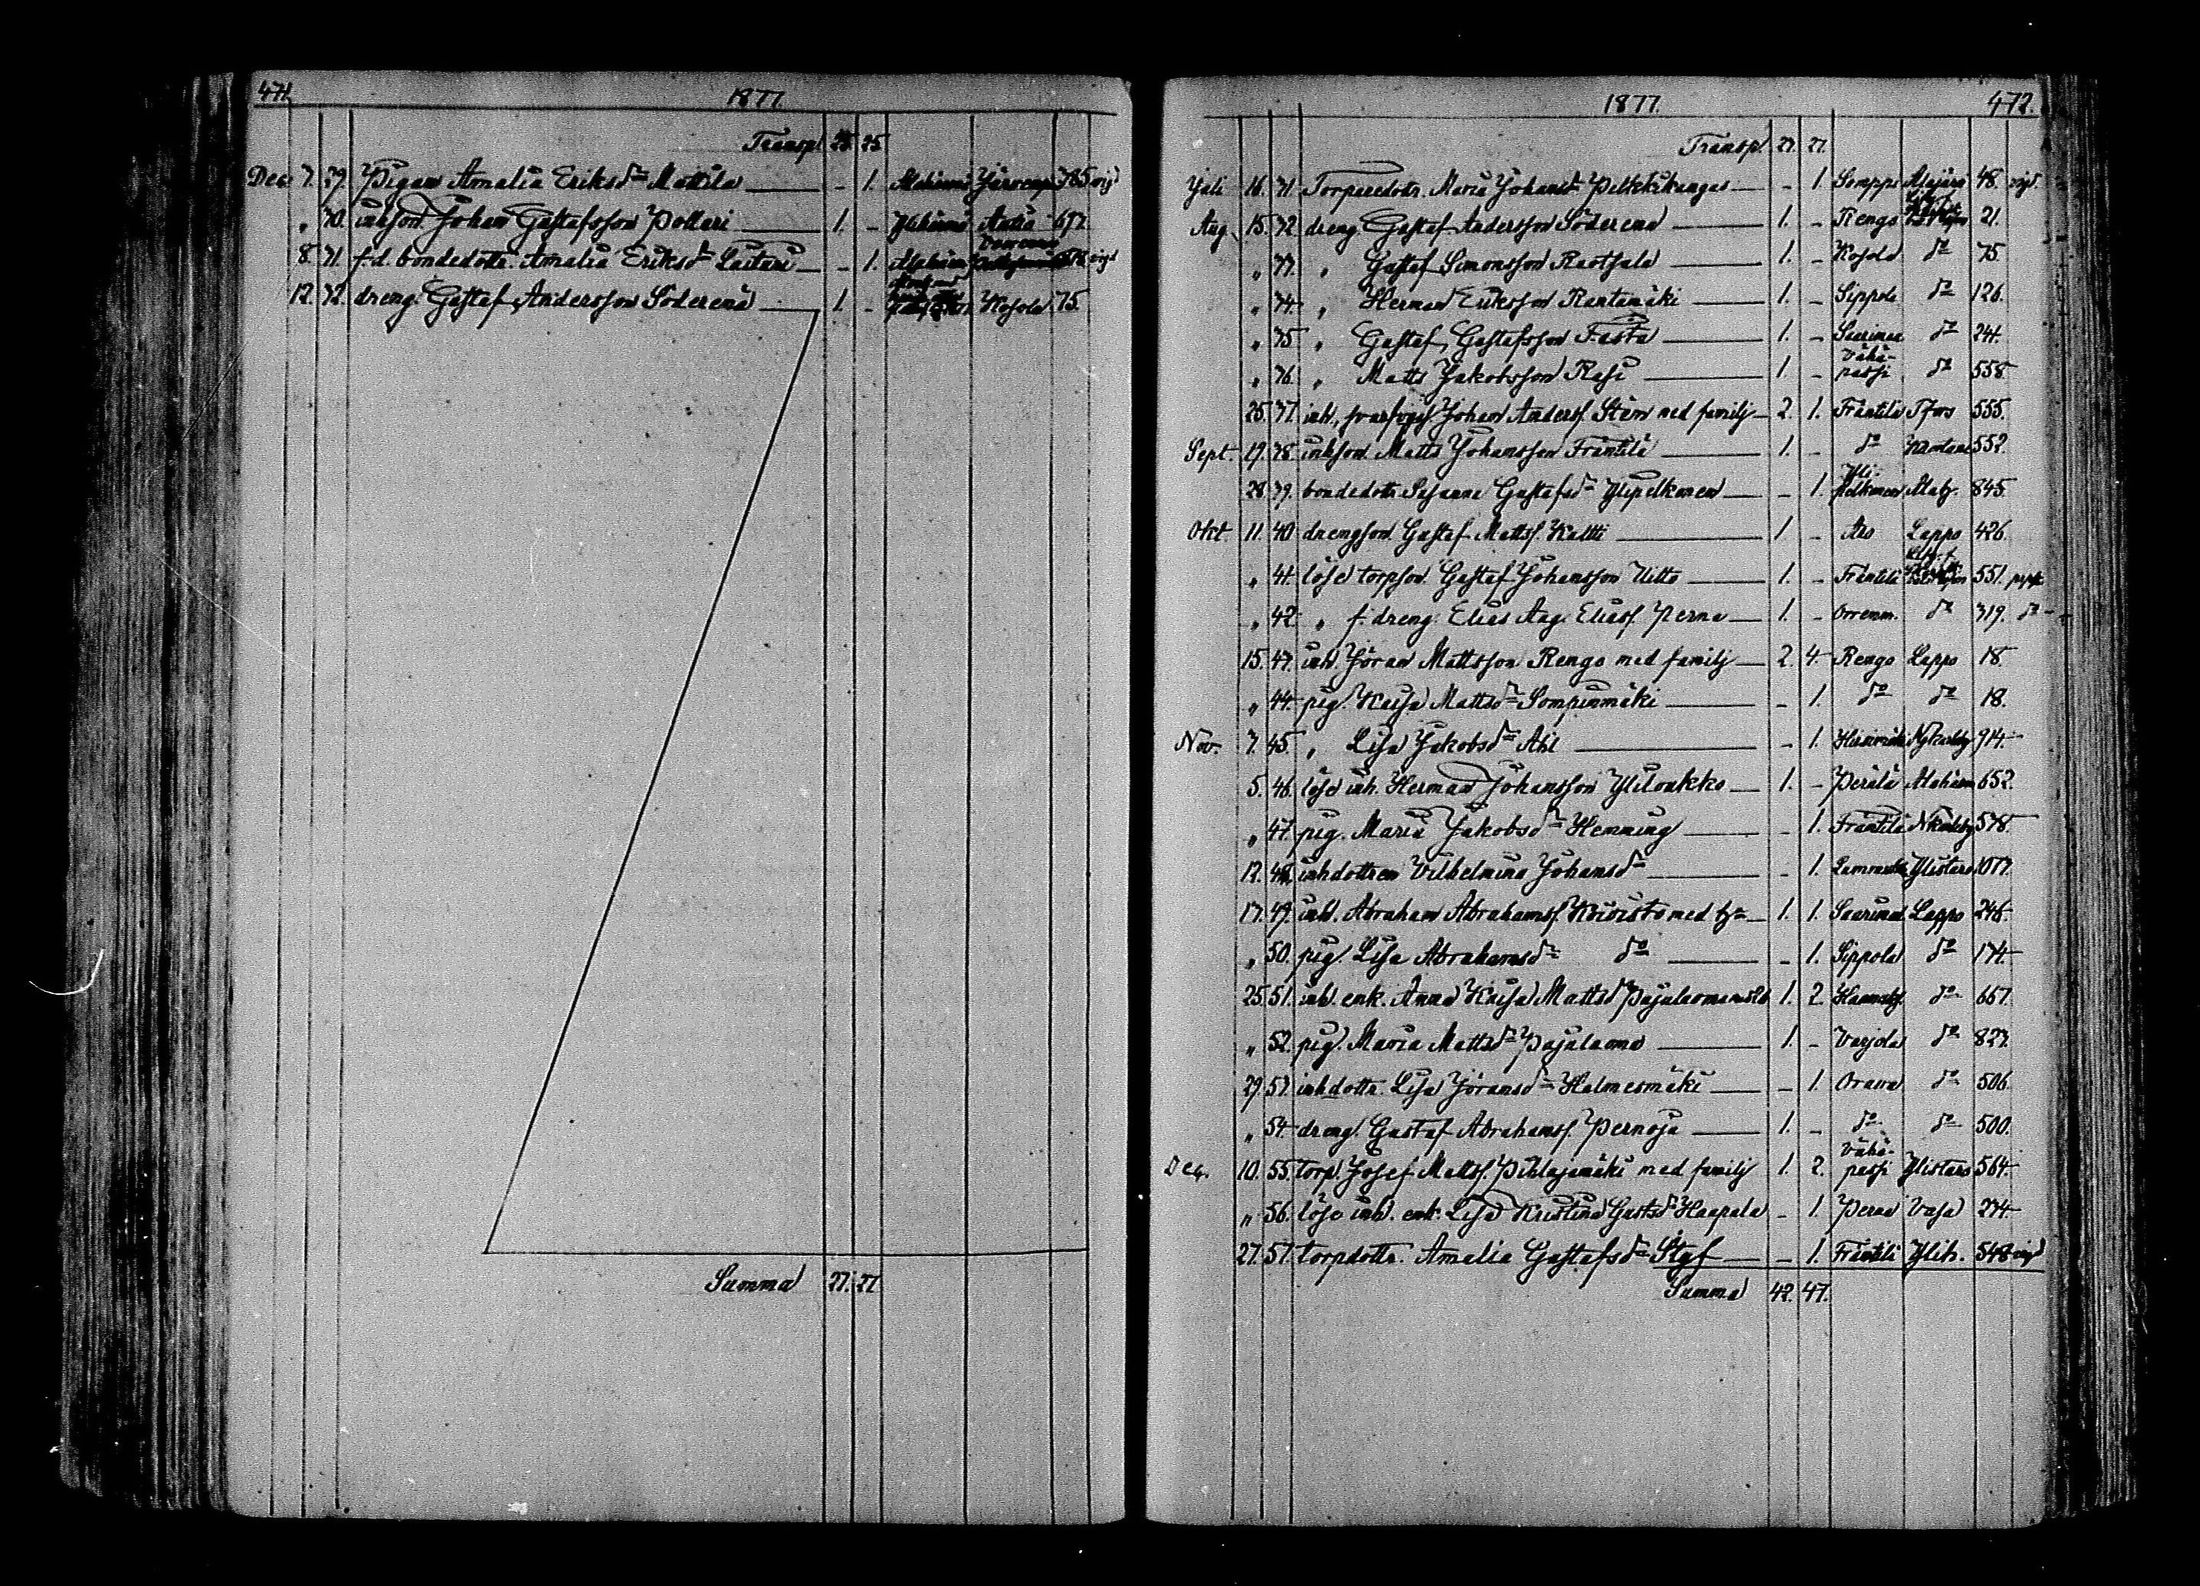 471. 1877.
Transp. 25. 25.
Dec. 7. 29. Pigan Amalia Eriksdr Mattila — – 1. Alahärmä 785 vigd
" 30. inhson Johan Gustafsson Pollari — 1. – Ylihärmä Anttila 657.
8. 31. f.d. bondedottr. Amalia Eriksdr Laituri — – 1. vigd
12. 32. dreng. Gustaf Andersson Söderena — 1. – Kosola 75.
Summa 27. 27.
1877. 472.
Transp. 27. 27.
Juli 16. 31. Torparedottr. Maria Johansdr — – 1. Somppi Alajärvi 48. vigd.
Aug. 15. 32 dreng Gustaf Andersson Söderena — 1. – Rengo 21.
" 33. " Gustaf Simonsson Rastsala — 1. – Kosola do 75.
" 34. " Herman Eriksson Rantamäki — 1. – Sippola do 126.
" 35 " Gustaf Gustafsson Fasta — 1. – Saarimaa do 241.
" 36. " Matts Jakobsson Rasi — 1. – Vähä-passi do 558.
25. 37. inh. Johan Anderss. Stam med familj — 2. 1. Frantila Tfors 555.
Sept. 19. 38 inhson. Matts Johansson Frantila — 1. – do 552.
28. 39. bondedottr Susanna Gustafsdr Ylipelkonen — – 1. Yli-pelkonen Malax. 845.
Okt. 11. 40 drengson. Gustaf Mattss. Kaltti — 1 – Aro Lappo 426.
" 41. löse torpson. Gustaf Johansson Uitto — 1. – Frantila 551.
" 42 " f. dreng. Elias Aug. Eliass. Perna — 1. – Orrenm. do 319. do
15. 43. inh. Jöran Mattsson Rengo med familj — 2. 4. Rengo Lappo 18.
" 44. pig. Kaisa Mattsdr Sompinmäki — – 1. do do 18.
Nov. 7. 45. " Lisa Jakobsdr Ahl — – 1. Nykarleby 914.
5. 46. löse inh. Herman Johansson Yliloukko — 1. – Perälä Alahärm 652.
" 47. pig. Maria Jakobsdr Henning — – 1. Frantila Nkarleby 578.
12. 48. inhdottren Vilhelmina Johansdr — – 1. Ylistaro 1077.
17. 49. inh. Abraham Abrahamss. Koivisto med h — 1. 1. Saarimaa Lappo 246.
" 50. pig. Lisa Abrahamsdr do — – 1. Sippola do 174.
25. 51. inh. enk. Anna Kaisa Mattsdr 1. 2. do 667.
" 52. pig. Maria Mattsdr Pajulaoma — 1. – Varjola do 827.
29. 53. inhdottr. Lisa Jöransdr Halmesmäki — – 1. Orawa do 506.
" 54. dreng. Gustaf Abrahamss. Pernaja — 1. – do do 500.
Dec. 10. 55. torp. Josef Mattss. Pihlajamäki med familj 1. 2. Vähä-passi Ylistaro 564.
" 56. löse inh. enk. Lisa Kristina Gustsdr Haapala – 1. Perna Vasa 274.
27. 57. torpdottr. Amalia Gustafsdr Staf — – 1. Frantila Ylih. 548 vigd
Summa 42. 47.